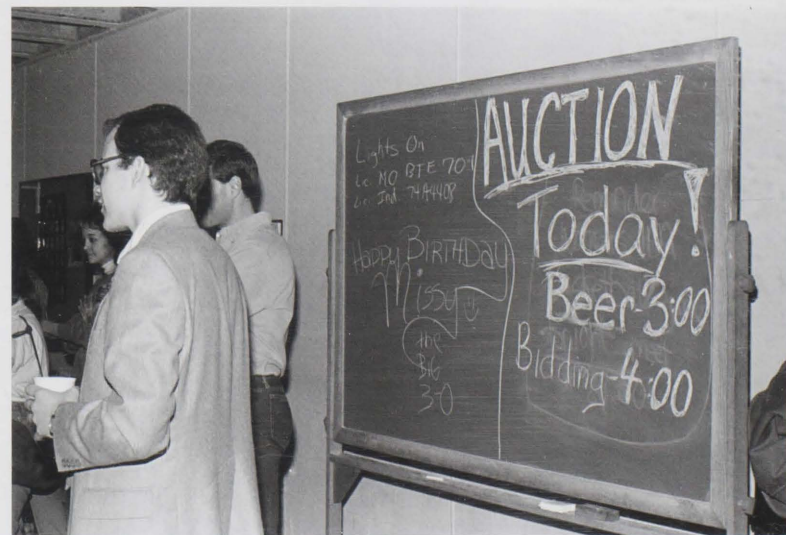 Lights On
Lic. MO BTE 704
Lic. Ind. 74A4408
Happy BIRTHDAY
Missy
the
BIG
3-0
AUCTION
Today!
Beer-3:00
Bidding-4:00